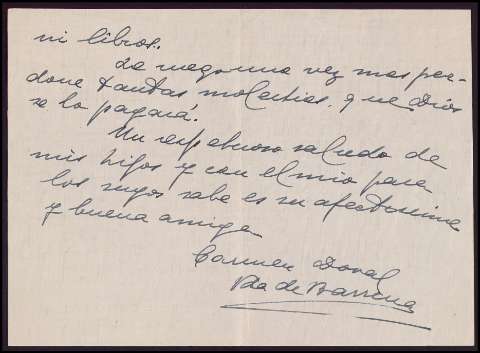 ni libros.
Le ruego una vez mas per-
done tantas molestias, que Dios
se lo pagará.
Un respetuoso saludo de
mis hijos y con el mio para
los suyos sabe es su afectisima
y buena amiga
Carmen Doval
Vda de Barrena